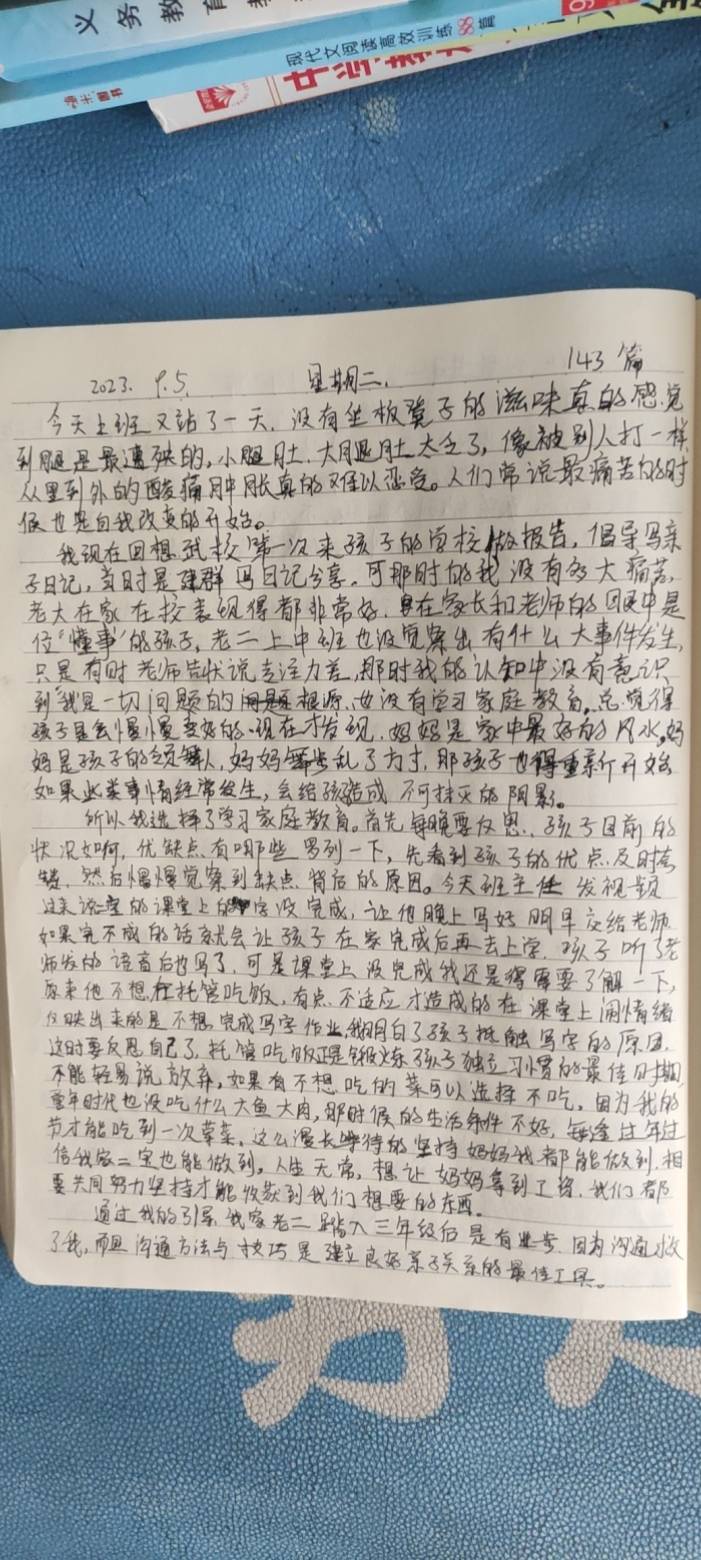 义务教育
现代文阅读高效训练88篇
143篇
2023. 9.5. 星期二.
今天上班又站了一天.没有坐板凳子的滋味真的感觉
到腿是最遭殃的,小腿肚.大腿肚太乏了,像被别人打一样
从里到外的酸痛肿胀真的难以忍受。人们常说最痛苦的时
候也是自我改变的开始。
我现在回想武校第一次来孩子的学校做报告,倡导写亲
子日记,当时是建群写日记分享.可那时的我没有多大痛苦,
老大在家在校表现得都非常好.是在家长和老师的眼中是
位“懂事”的孩子,老二上中班也没觉察出有什么大事件发生,
只是有时老师告状说专注力差,那时我的认知中没有意识
到“我是一切问题的根源.也没有学习家庭教育.总觉得
孩子是会慢慢变好的.现在才发现.妈妈是家中最好的风水,妈
妈是孩子的领舞人,妈妈舞步乱了方寸,那孩子也得重新开始
如果此类事情经常发生,会给孩造成不可抹灭的阴影。
所以我选择了学习家庭教育。首先每晚要反思.孩子目前的
状况如何,优缺点有哪些罗列一下,先看到孩子的优点及时
然后慢慢觉察到缺点背后的原因。今天班主任发视频
过来说二宝的课堂上的字没完成,让他晚上写好明早交给老师
如果完不成的话就会让孩子在家完成后再去上学.孩子听了老
师发的语音后也写了,可是课堂上没完成我还是得需要了解一下,
原来他不想在托管吃饭,有点不适应才造成的在课堂上闹情绪
反映出来的是不想完成写字作业,我明白了孩子抵触写字的原因.
这时要反思自己了.托管吃饭正是锻炼孩子独立习惯的最佳时期
不能轻易说放弃,如果有不想吃的菜可以选择不吃,因为我的
童年时代也没吃什么大鱼大肉,那时候的生活条件不好,每逢过年过
节才能吃到一次荤菜.这么漫长等待的坚持妈妈我都能做到.相
信我家二宝也能做到,人生无常,想让妈妈拿到工资.我们都
要共同努力坚持才能收获到我们想要的东西。
通过我的引导.我家老二踏入三年级后是有进步.因为沟通救
了我,而且沟通方法与技巧是建立良好亲子关系的最佳工具。